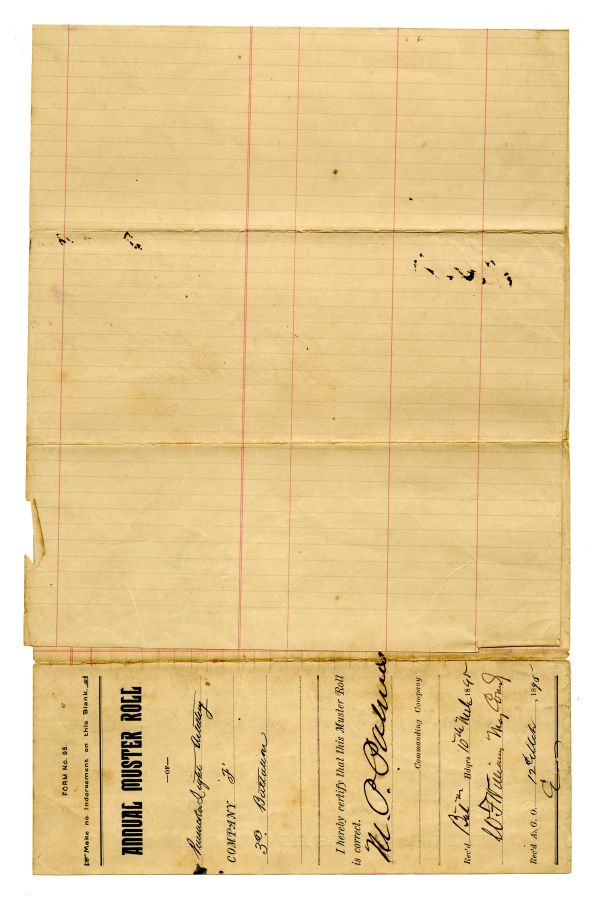 FORM No. 95.
Make no Indorsement on this Blank.
ANNUAL MUSTER ROLL
—OF—
Light Artillery
COMPANY "F"
3d Battalion
I hereby certify that this Muster Roll
is correct.
M. P. Palmer
Commanding Company
Rec'd Hdqrs 10th Mch 1895
Williams Maj Comdg
Rec'd A. G. O. 12th Mch, 1895